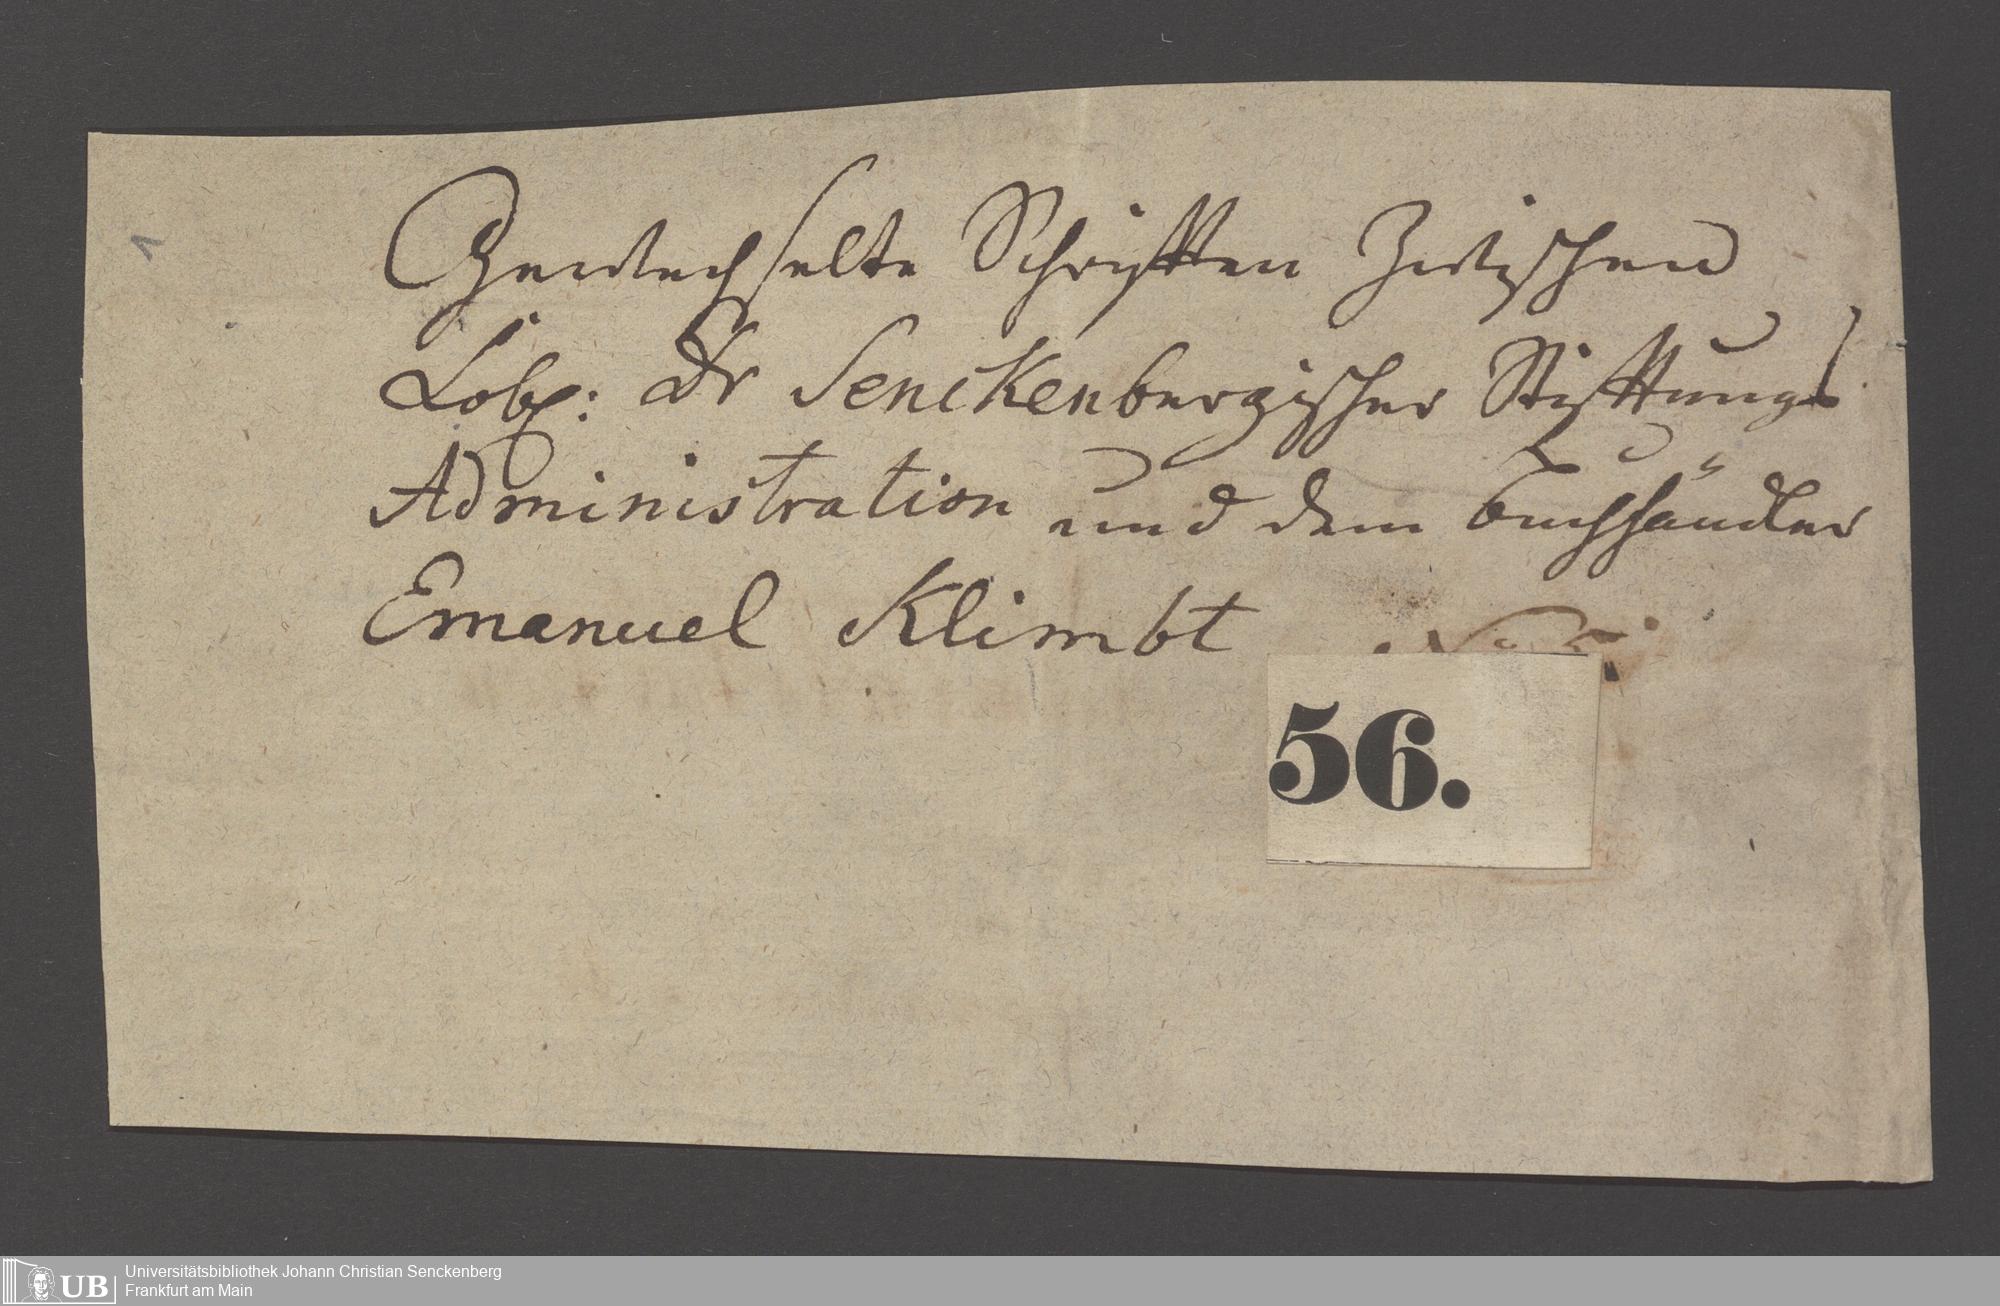 Gewechselte Schrifften Zwischen
Lobl: Dr Senckenbergischer Stifftungs
Administration und dem Buchhändler
Emanuel Klimbt
56.
UB Universitätsbibliothek Johann Christian Senckenberg
Frankfurt am Main